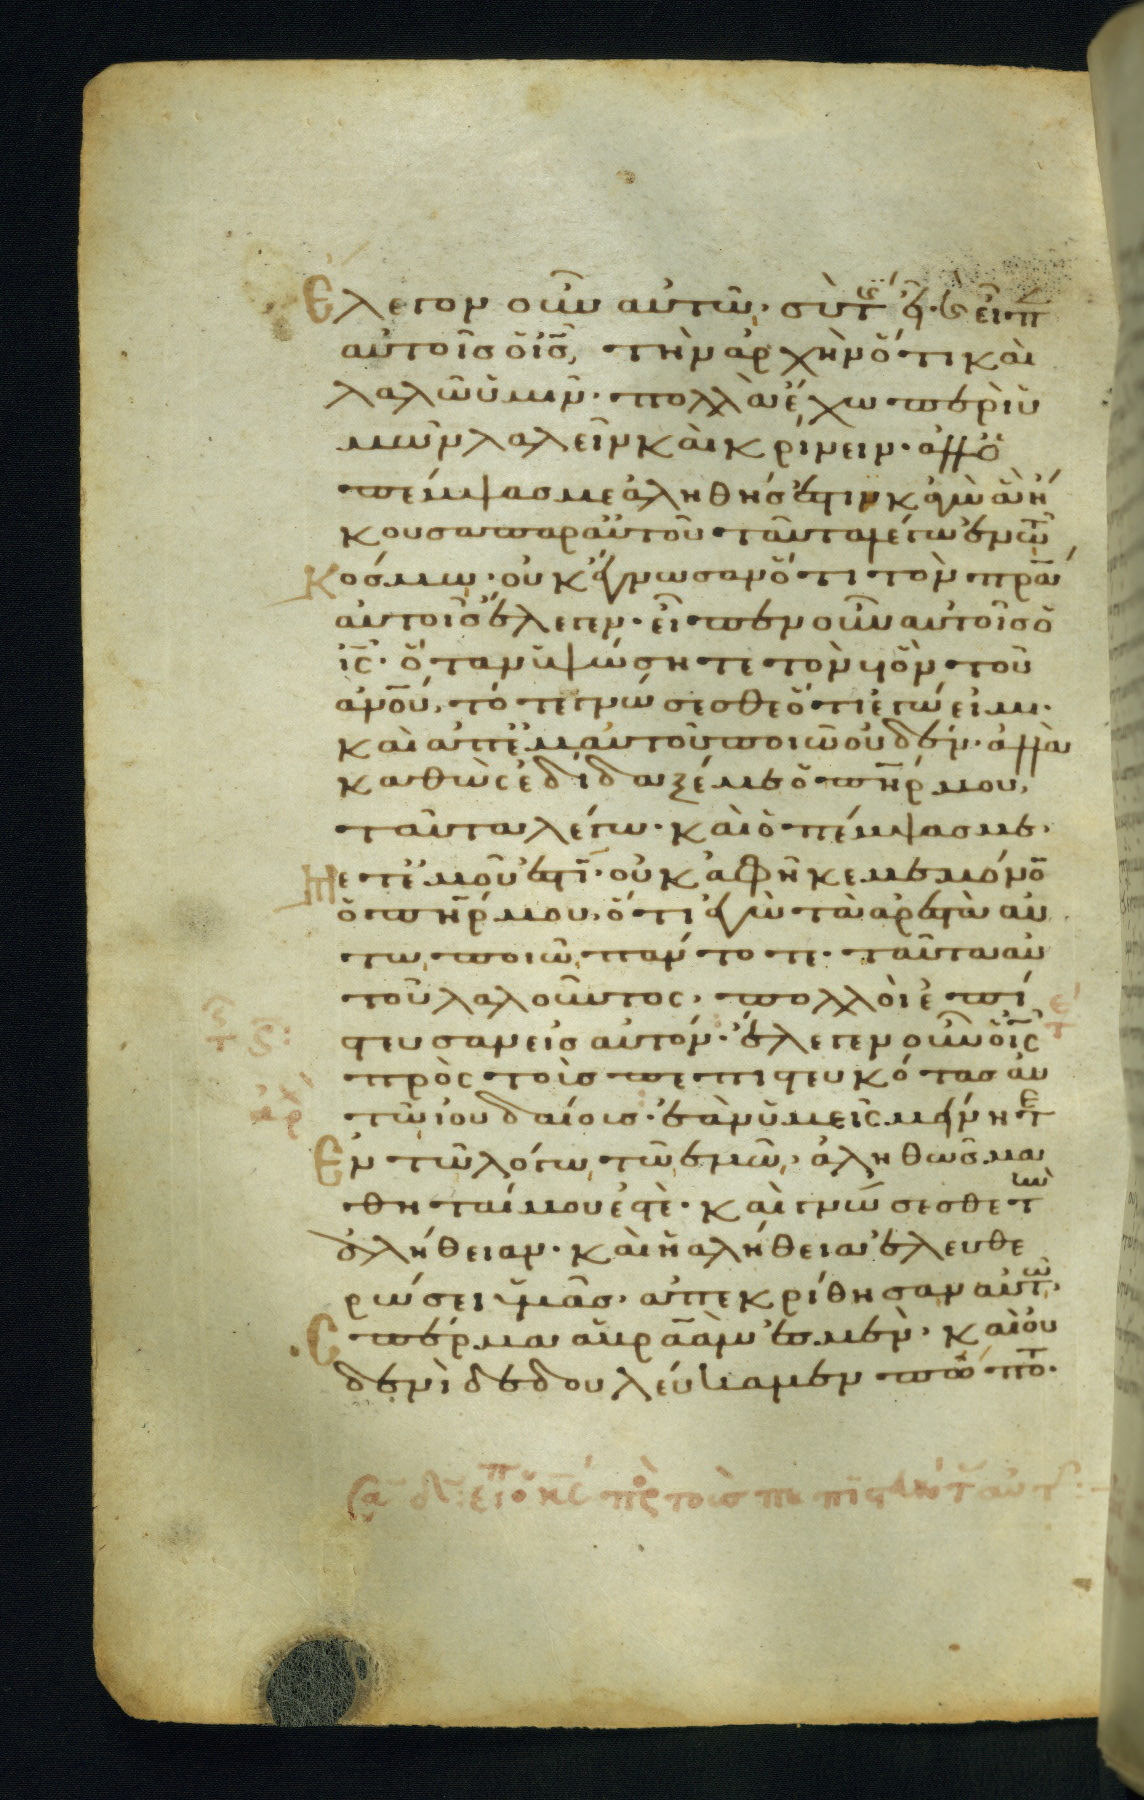 Ἔλεγον οὖν αὐτῶ· σὺ τίς εἶ· καὶ εἶπεν
αὐτοῖς ὁ ις̅, τὴν ἀρχὴν ὅτι καὶ
λαλῶ ὑμῖν· πολλὰ ἔχω περὶ ὑ
μῶν λαλεῖν καὶ κρίνειν· ἀλλ' ὁ
πέμψας με ἀληθής ἐστιν κἀγὼ ἃ ἤ
κουσα παρ' αὐτοῦ ταῦτα λέγω εἰς τὸν
Κόσμω· οὐκ ἔγνωσαν ὅτι τὸν πρ̅α
αὐτοῖς ἔλεγεν· εἶπεν οὖν αὐτοῖς ὁ
ις̅· ὅταν ὑψώσητε τὸν υἱὸν τοῦ
ἀν̅ου, τότε γνώσεσθε ὅτι ἐγώ εἰμι·
καὶ ἀπ' ἐμαυτοῦ ποιῶ οὐδέν· ἀλλὰ
καθὼς ἐδίδαξέν με ὁ πη̅ρ μου,
ταῦτα λέγω· καὶ ὁ πέμψας με,
Μετ' ἐμοῦ ἐστι· οὐκ ἀφῆκέ με μόνο
ὁ πη̅ρ μου, ὅτι ἐγὼ τὰ ἀρεστὰ αὐ
τῶ ποιῶ πάντοτε· ταῦτα αὐ
τοῦ λαλοῦντος, πολλοὶ ἐπί
στευσαν εἰς αὐτόν· ἔλεγεν οὖν ὁ ις̅
πρὸς τοὺς πεπιστευκότας αὐ
τῶ ἰουδαίους· ἐὰν ὑμεῖς μείνητε
Ἐν τῶ λόγω τῶ ἐμῶ, ἀληθῶς μα
θηταί μου ἐστὲ· καὶ γνώσεσθε τὴν
ἀλήθειαν· καὶ ἡ ἀλήθεια ἐλευθε
ρώσει ὑμᾶς· ἀπεκρίθησαν αὐτῶ·
Σπέρμα ἀβραάμ ἐσμεν· καὶ οὐ
δενὶ δεδουλεύκαμεν πώποτε·
εἶπ ὁ κς̅ πρὸς τοὺς πεπιστευκότ αὐτ